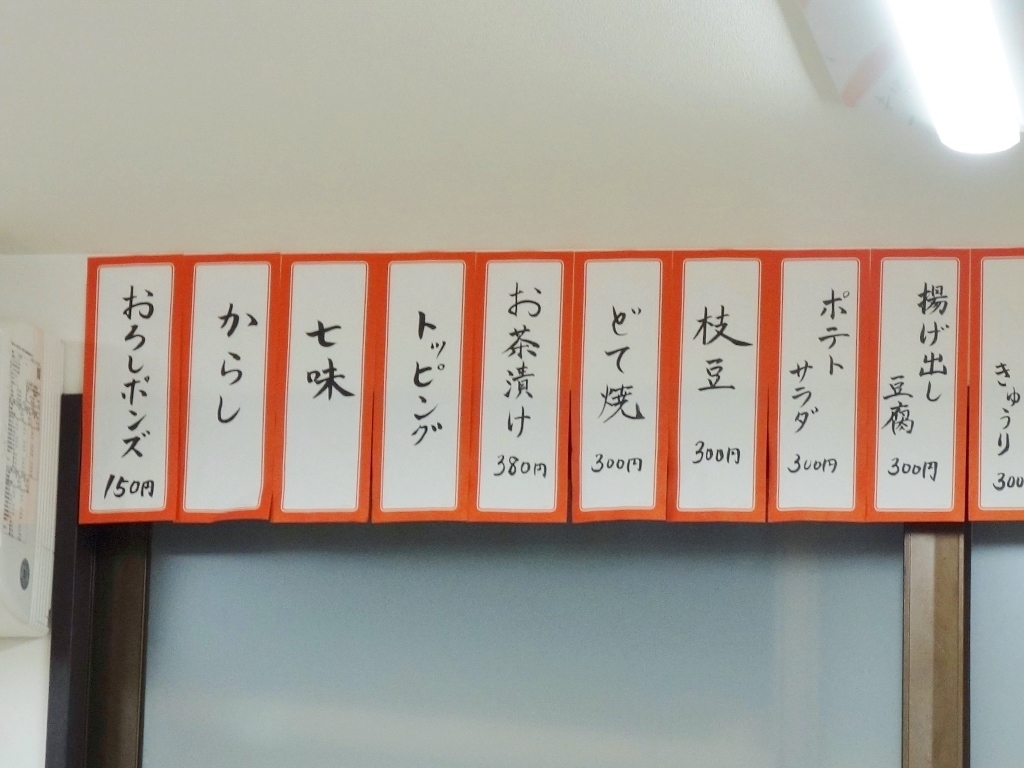 きゅうり
300
揚げ出し
豆腐
300円
ポテト
サラダ
300円
枝豆
300円
どて焼
300円
お茶漬け
380円
トッピング
七味
からし
おろしポンズ
150円